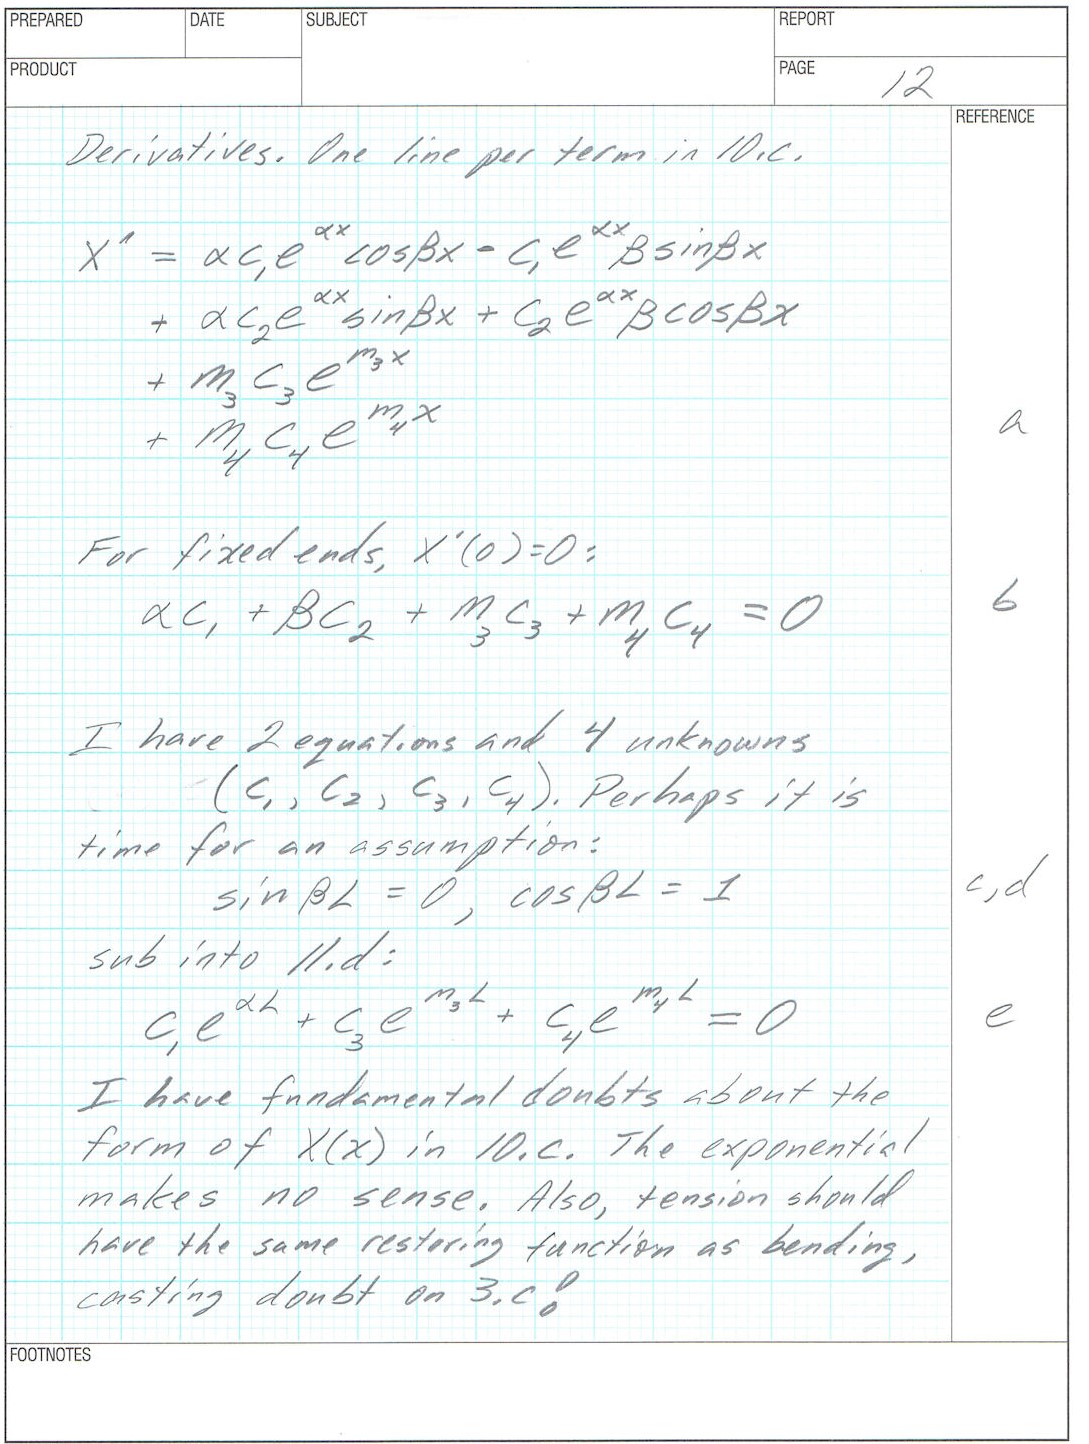 PREPARED
DATE
SUBJECT
REPORT
PRODUCT
PAGE 12
REFERENCE
Derivatives. One line per term in 10.c.
X' = αc₁e^αx cosβx - c₁e^αx β sinβx
+ αc₂e^αx sinβx + c₂e^αx β cosβx
+ m₃c₃e^m₃x
+ m₄c₄e^m₄x a
For fixed ends, X'(0)=0:
αc₁ + βc₂ + m₃c₃ + m₄c₄ = 0 b
I have 2 equations and 4 unknowns
(c₁, c₂, c₃, c₄). Perhaps it is
time for an assumption:
sin βL = 0, cos βL = 1 c,d
sub into 11.d:
c₁e^αL + c₃e^m₃L + c₄e^m₄L = 0 e
I have fundamental doubts about the
form of X(x) in 10.c. The exponential
makes no sense. Also, tension should
have the same restoring function as bending,
casting doubt on 3.c!
FOOTNOTES